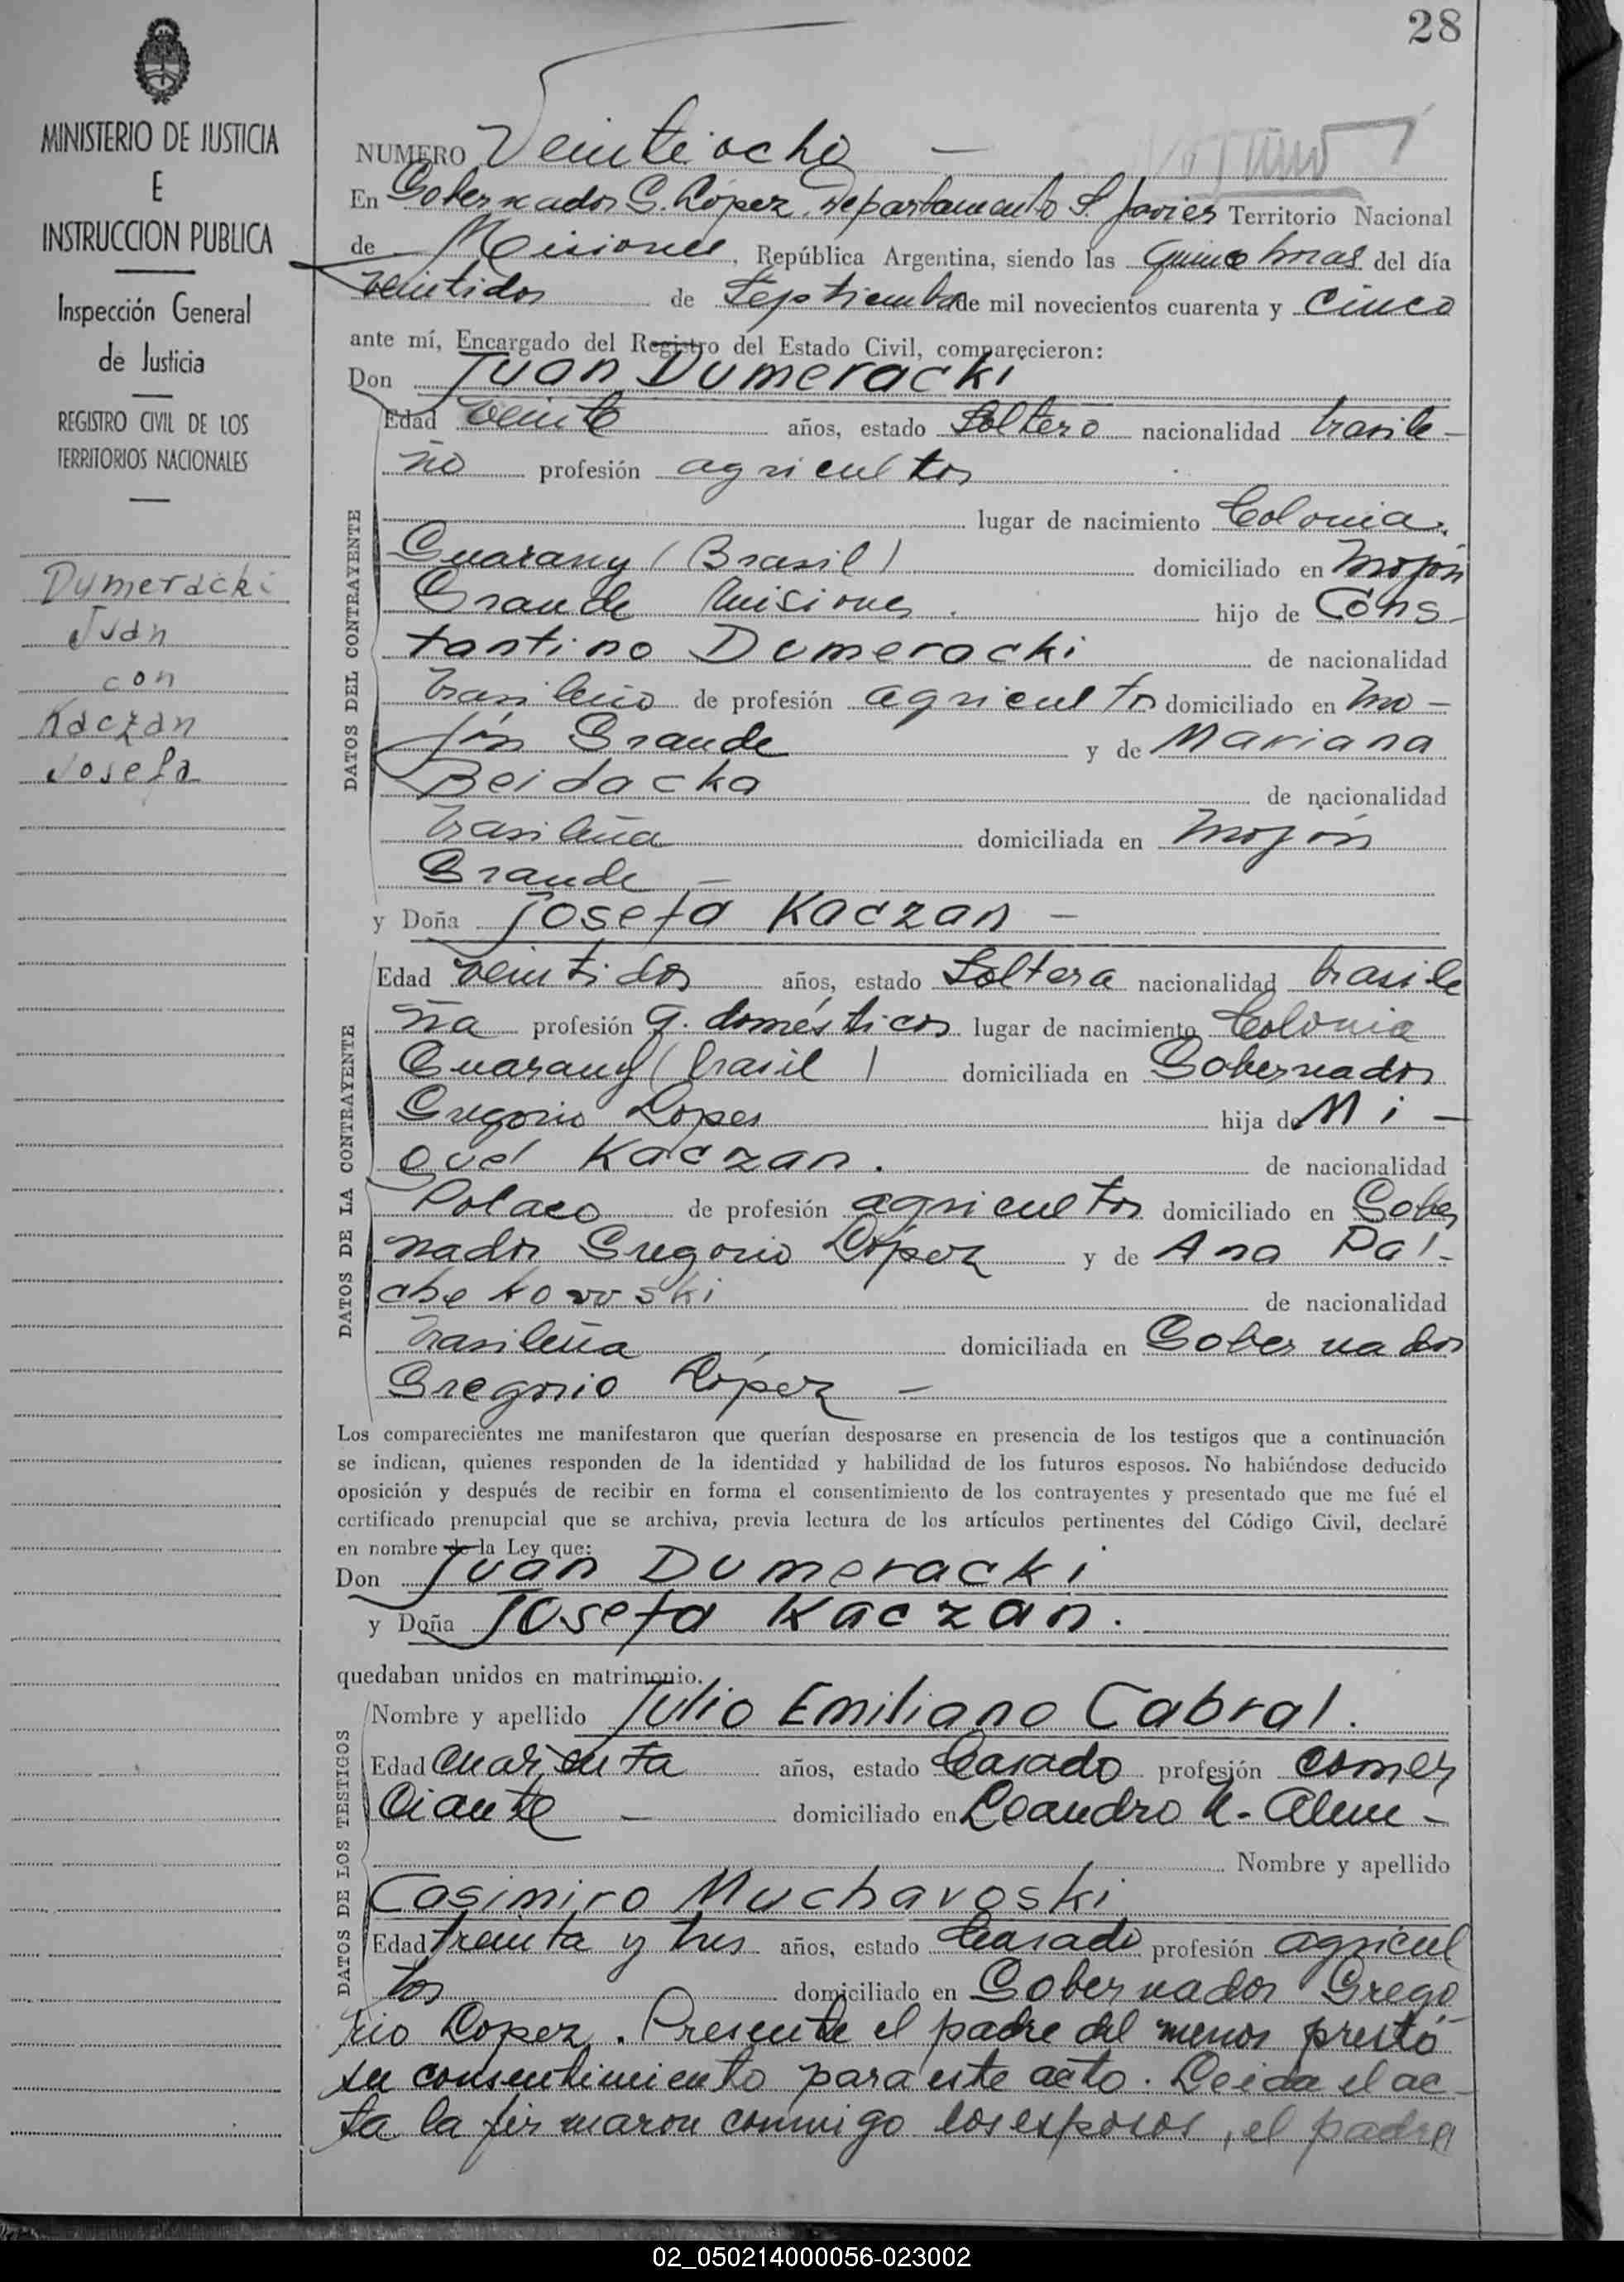 28
MINISTERIO DE JUSTICIA
E
INSTRUCCION PUBLICA
Inspección General
de Justicia
REGISTRO CIVIL DE LOS
TERRITORIOS NACIONALES
Dumeracki
Juan
con
Kaczan
Josefa
NUMERO Veintiocho —
En Gobernador G. López, Departamento S. Javier Territorio Nacional
de Misiones, República Argentina, siendo las quince horas del día
veintidos de Septiembre de mil novecientos cuarenta y cinco
ante mí, Encargado del Registro del Estado Civil, comparecieron:
Don Juan Dumeracki
DATOS DEL CONTRAYENTE
Edad veinte años, estado Soltero nacionalidad brasile-
ño profesión agricultor
lugar de nacimiento Colonia
Guarany (Brasil) domiciliado en Mojón
Grande Misiones. hijo de Cons-
tantino Dumeracki de nacionalidad
brasileño de profesión agricultor domiciliado en Mo-
jón Grande y de Mariana
Beidacka de nacionalidad
brasileña domiciliada en Mojón
Grande —
y Doña Josefa Kaczan —
DATOS DE LA CONTRAYENTE
Edad veintidos años, estado Soltera nacionalidad brasile
ña profesión q. domésticos lugar de nacimiento Colonia
Guarany (brasil) domiciliada en Gobernador
Gregorio Lopes hija de Mi-
guel Kaczan. de nacionalidad
Polaco de profesión agricultor domiciliado en Gober
nador Gregorio López y de Ana Pal-
chekowski de nacionalidad
brasileña domiciliada en Gobernador
Gregorio López —
Los comparecientes me manifestaron que querían desposarse en presencia de los testigos que a continuación
se indican, quienes responden de la identidad y habilidad de los futuros esposos. No habiéndose deducido
oposición y después de recibir en forma el consentimiento de los contrayentes y presentado que me fué el
certificado prenupcial que se archiva, previa lectura de los artículos pertinentes del Código Civil, declaré
en nombre de la Ley que:
Don Juan Dumeracki
y Doña Josefa Kaczan.
quedaban unidos en matrimonio.
DATOS DE LOS TESTIGOS
Nombre y apellido Julio Emiliano Cabral.
Edad cuarenta años, estado Casado profesión comer
ciante — domiciliado en Leandro N. Alem -
Nombre y apellido
Casimiro Muchavoski
Edad treinta y tres años, estado Casado profesión agricul
tor domiciliado en Gobernador Grego
rio Lopez. Presente el padre del menor prestó
su consentimiento para este acto. Leida el ac-
ta la firmaron conmigo los esposos, el padre
02_050214000056-023002